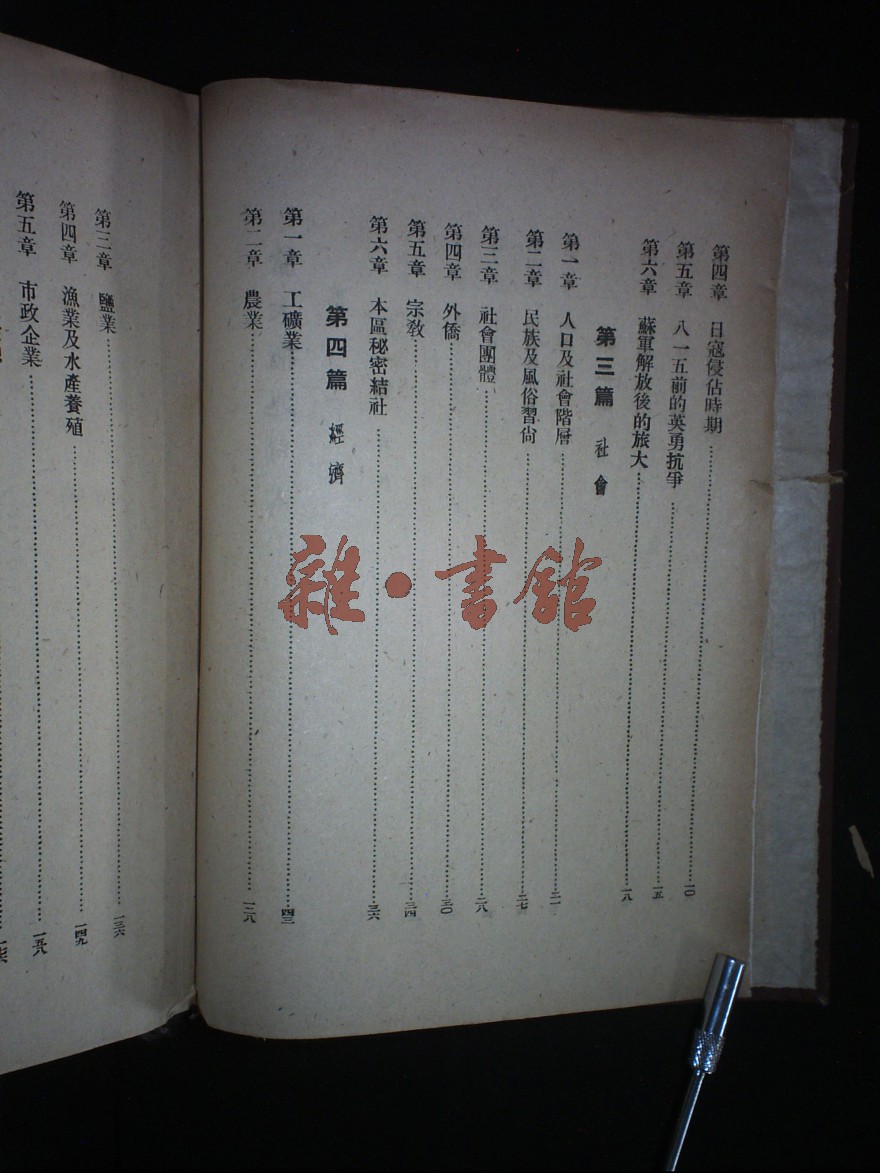 第四章 日寇侵佔時期 一〇
第五章 八一五前的英勇抗爭 一五
第六章 蘇軍解放後的旅大 一八
第三篇 社會
第一章 人口及社會階層 二一
第二章 民族及風俗習尙 二七
第三章 社會團體 二八
第四章 外僑 三〇
第五章 宗教 三四
第六章 本區秘密結社 三六
第四篇 經濟
第一章 工礦業 四三
第二章 農業
第三章 鹽業 一三六
第四章 漁業及水產養殖 一四九
第五章 市政企業 一五八
雜·書館